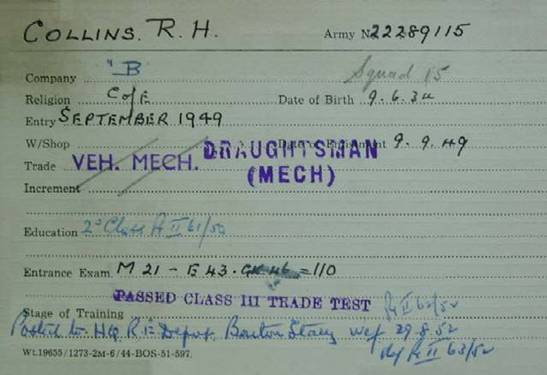 COLLINS. R. H. Army No 22289115
Company "B" Squad 15
Religion C of E Date of Birth 9. 6. 34
Entry SEPTEMBER 1949
W/Shop Date of Enlistment 9. 9. 49
Trade VEH. MECH. DRAUGHTSMAN (MECH)
Increment
Education 2nd Class A II 61/50
Entrance Exam. M 21 - E 43. GK 46 = 110
PASSED CLASS III TRADE TEST II 62/52
Stage of Training
Posted to HQ R.E. Depot, Barton Stacey wef 29.8.52
II 63/52
Wt.19655/1273-2M-6/44-BOS-51-597.